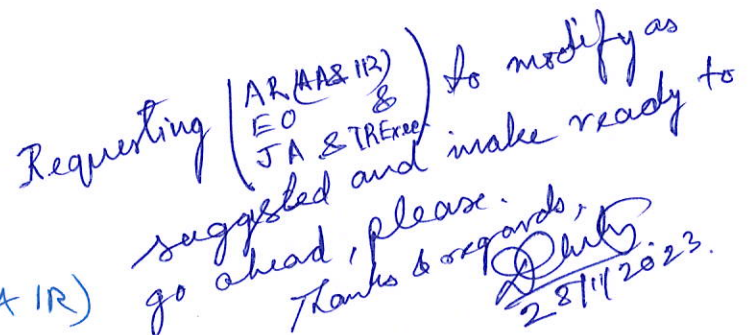 Requesting (AR (AA& IR)
EO &
JA & IR Exec) to modify as
suggested and make ready to
go ahead, please.
Thanks & regards,
28/11/2023.
A IR)